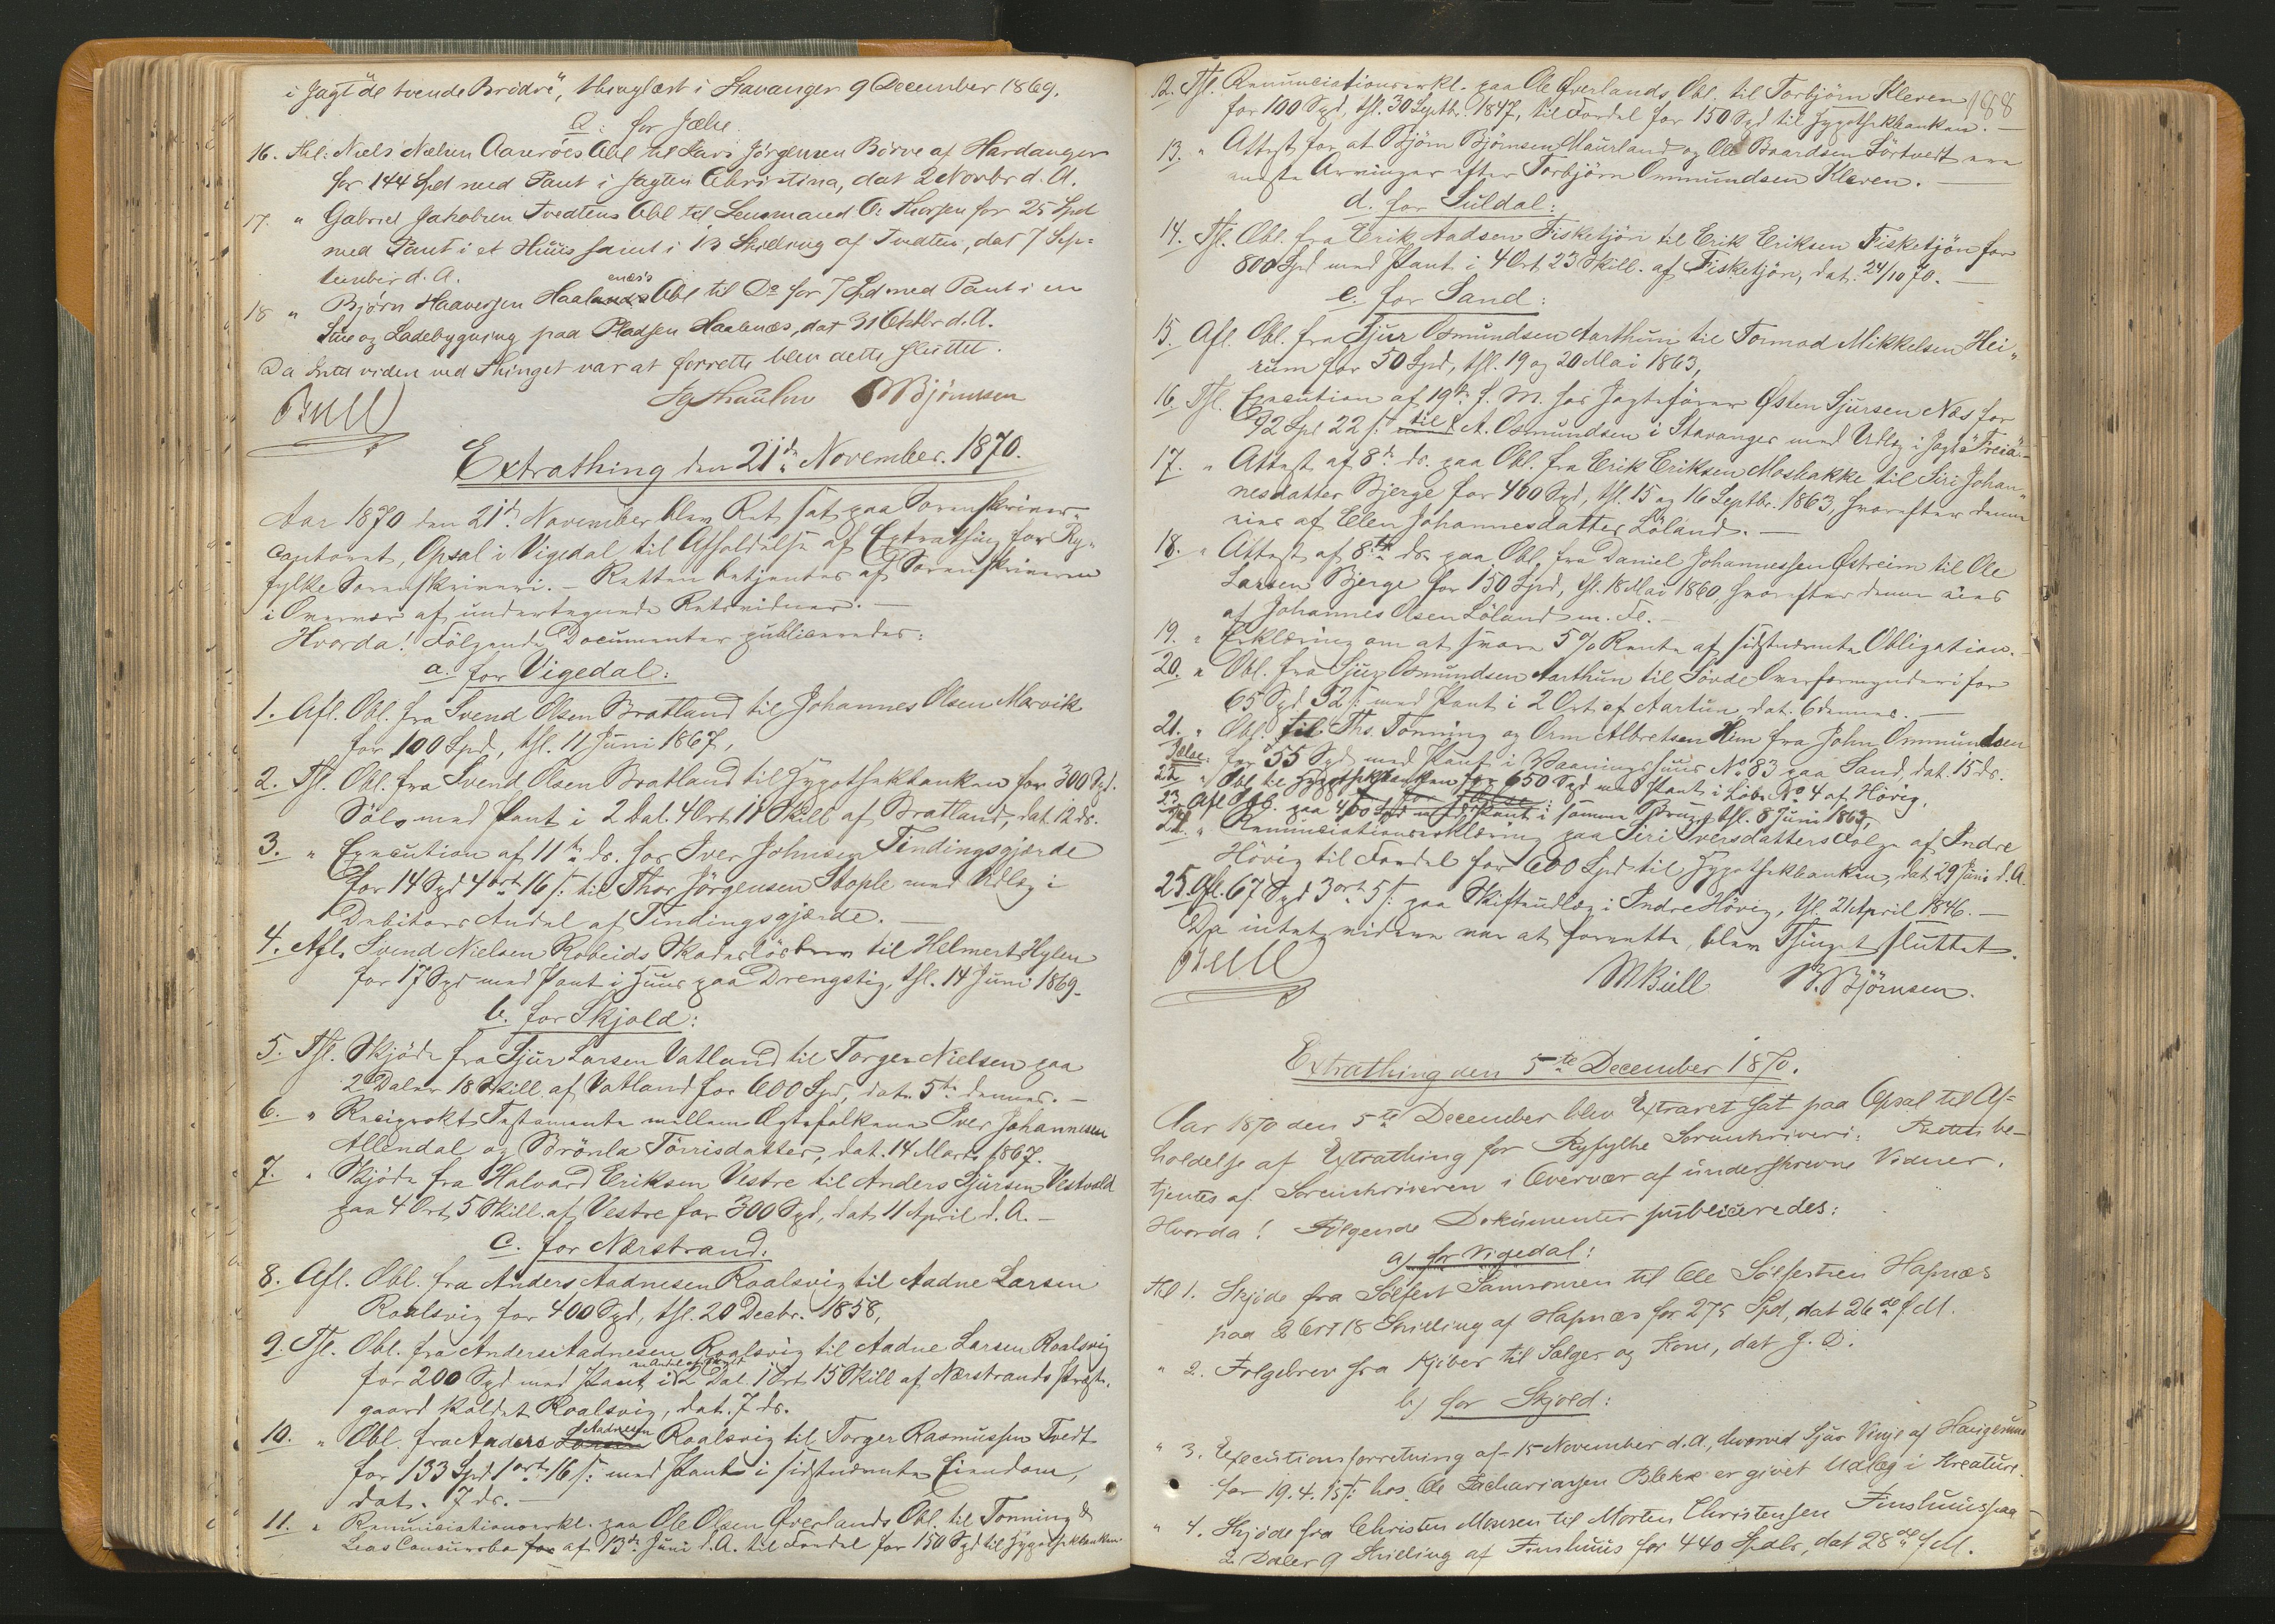 i Jagt "de tvende Brödre", thinglæst i Stavanger 9 December 1869.
Q: for Jælse
16. Thl: Niels Nielsen Aarröes Obl til Lars Jörgensen Börve af Hardanger
for 144 Spd med Pant i Jagten Christina, dat 2 Novbr d. A.
17. " Gabriel Jakobsen Tvedtens Obl til Lensmand O: Thorsen for 25 Spd
med Pant i et Huus samt i 13 Skilling af Tvedten, dat 7 Sep-
tember d. A.
18 " Björn Haaversen Haalandsnæs's Obl til Do for 7 Spd med Pant i en
Stue og Ladebygning paa Pladsen Haalenæs, dat 31 Oktbr d. A.
Da Intet videre ved Thinget var at forrette blev dette sluttet.
Bull
Thaulow BBjörnsen
Extrathing den 21de November. 1870.
Aar 1870 den 21de November blev Ret sat paa Sorenskriver-
contoret, Opsal i Vigedal til Afholdelse af Extrathing for Ry-
fylke Sorenskriveri. - Retten betjentes af Sorenskriveren
i Overvær af undertegnede Retsvidner. -
Hvorda! Fölgende Documenter publiceredes:
a. for Vigedal:
1. Afl. Obl. fra Svend Olsen Bratland til Johannes Olsen Marvik
for 100 Spd, thl. 11 Juni 1867,
2. Thl. Obl. fra Svend Olsen Bratland til Hypothekbanken for 300 Spd.
Sölv med Pant i 2 Dal. 4 Ort. 11 Skill af Bratland, dat. 12 ds.
3. " Execution af 11te ds. hos Iver Johnsen Tindingsgjærde
for 14 Spd 4 ort 16 s: til Thor Jörgensen Stople med Udlæg i
Debitors Andel af Tindingsgjærde. -
4. Afl. Svend Nielsen Robeids Skadeslösbrev til Helmert Hylen
for 17 Spd med Pant i Huus paa Drengstig, thl. 14 Juni 1869-
b. for Skjold:
5. Thl. Skjöde fra Sjur Larsen Vatland til Torger Nielsen paa
2 Daler 18 Skill. af Vatland for 600 Spd, dat. 5te dennes. -
6. " Reciprokt Testamente mellem Ægtefolkene Iver Johannesen
Allendal og Brönla Törrisdatter, dat. 14 Marts 1867.
7. " Skjöde fra Halvard Eriksen Vestre til Anders Sjursen Vestvold
paa 4 Ort 5 Skill. af Vestre for 300 Spd, dat 11 April d. A. -
c. for Nærstrand:
8. Afl. Obl. fra Anders Aadnesen Roalsvig til Aadne Larsen
Roalsvig for 400 Spd, thl. 20 Decbr. 1858,
9. Thl. Obl. fra Anders Aadnesen Roalsvig til Aadne Larsen Roalsvig
for 200 Spd med Pant i 2 Dal. 1 Ort 15 Skill af Nærstrands Præste-
gaard kaldet Roalsvig, dat. 7 ds.
10. " Obl. fra Anders Larsen Aadnesen Roalsvig til Torger Rasmussen Tvedt
for 133 Spd 1 ort 16 s: med Pant i sidstnævnte Eiendom,
dat. 7 ds. -
11. " Renunciationserkl. paa Ole Olsen Qverlands Obl. til Tonning &
Leas Concursbo for af 13de Juni d. A. til Fordel for 150 Spd til Hypothekbanken
188
12. Thl. Renunciationserkl. paa Ole Qverlands Obl. til Torbjörn Kleven
for 100 Spd, thl. 30 Septbr. 1847, til Fordel for 150 Spd til Hypothekbanken. -
13. " Attest for at Björn Björnsen Maurland og Ole Baardsen Lörtvedt ere
eneste Arvinger efter Torbjörn Ommundsen Kleven. -
d. for Suldal:
14. Thl. Obl. fra Erik Aadsen Fisketjön til Erik Eriksen Fisketjön for
800 Spd med Pant i 4 Ort 23 Skill. af Fisketjön, dat. 24/10 70. -
e. for Sand:
15. Afl. Obl. fra Sjur Osmundsen Aarthun til Tormod Mikkelsen Hei-
rum for 50 Spd, thl. 19 og 20 Mai 1863,
16. Thl. Execution af 19de f. M. hos Jagtefører Østen Sjursen Næs for
92 Spd 22 s: til A. Osmundsen i Stavanger med Udlæg i Jagt "Freia"-
17. " Attest af 8de ds. paa Obl. fra Erik Eriksen Mosbakke til Siri Johan-
nesdatter Bjerge for 400 Spd, thl. 15 og 16 Septbr. 1863, hvorefter denne
eies af Elen Johannesdatter Löland. -
18. " Attest af 8de ds. paa Obl. fra Daniel Johannessen Østreim til Ole
Larsen Bjerge for 150 Spd, thl. 18 Mai 1860, hvorefter denne eies
af Johannes Olsen Löland m. Fl. -
19. " Erklæring om at svare 5 % Rente af sidstnævnte Obligation. -
20. " Obl. fra Sjur Osmundsen Aarthun til Sövde Overformynderi for
65 Spd 52 s: med Pant i 2 Ort af Aartun dat. 6 dennes. -
21. " Obl. til Ths. Tonning og Orm Albretsen Hiim fra John Ommundsen
for 55 Spd med Pant i Vaaningshuus No 83 paa Sand, dat. 15 ds.
Jælse.
22 " Obl. til Hypothekbanken for 650 Spd med Pant i Löbe No 4 af Hövig,
f. for Jælse:
23 Afl Obl. paa 400 Spd med Pant i samme Brug, thl. 8 Juni 1863,
24. " Renunciationserklæring paa Siri Iversdatters Folge af Indre
Hövig til Fordel for 600 Spd til Hypothekbanken, dat. 29 Juni d. A.
25. Afl. 67 Spd 3 ort 5 s: paa Skifteudlæg i Indre Hövig, thl. 21 April 1846. -
Da intet videre var at forrette, blev Thinget sluttet.
Bull
MBull B. Björnsen.
Extrathing den 5te December 1870.
Aar 1870 den 5te December blev Extraret sat paa Opsal til Af-
holdelse af Extrathing for Ryfylke Sorenskriveri: Retten be-
tjentes af Sorenskriveren i Overvær af underskrevne Vidner.
Hvorda! Fölgende Dokumenter publiceredes:
a) for Vigedal:
Thl 1. Skjöde fra Sölfest Samsonsen til Ole Sölfestsen Hapnæs
paa 2 Ort 18 Skilling af Hapnæs for 275 Spd, dat 26de f. M.
" 2. Folgebrev fra Kjöber til Sælger og Kone, dat J. D.
b) for Skjold:
" 3. Executionsforretning af 15 November d. A, hvorved Sjur Vinje af Haugesund
for 19. 4. 15 s: hos Ole Zachariasen Blikre er givet Udlæg i Kreature.
" 4. Skjöde fra Christen Monsen til Morten Christensen Finshuus paa
2 Daler 9 Skilling af Finshuus for 440 Spdlr, dat 28de f. M.